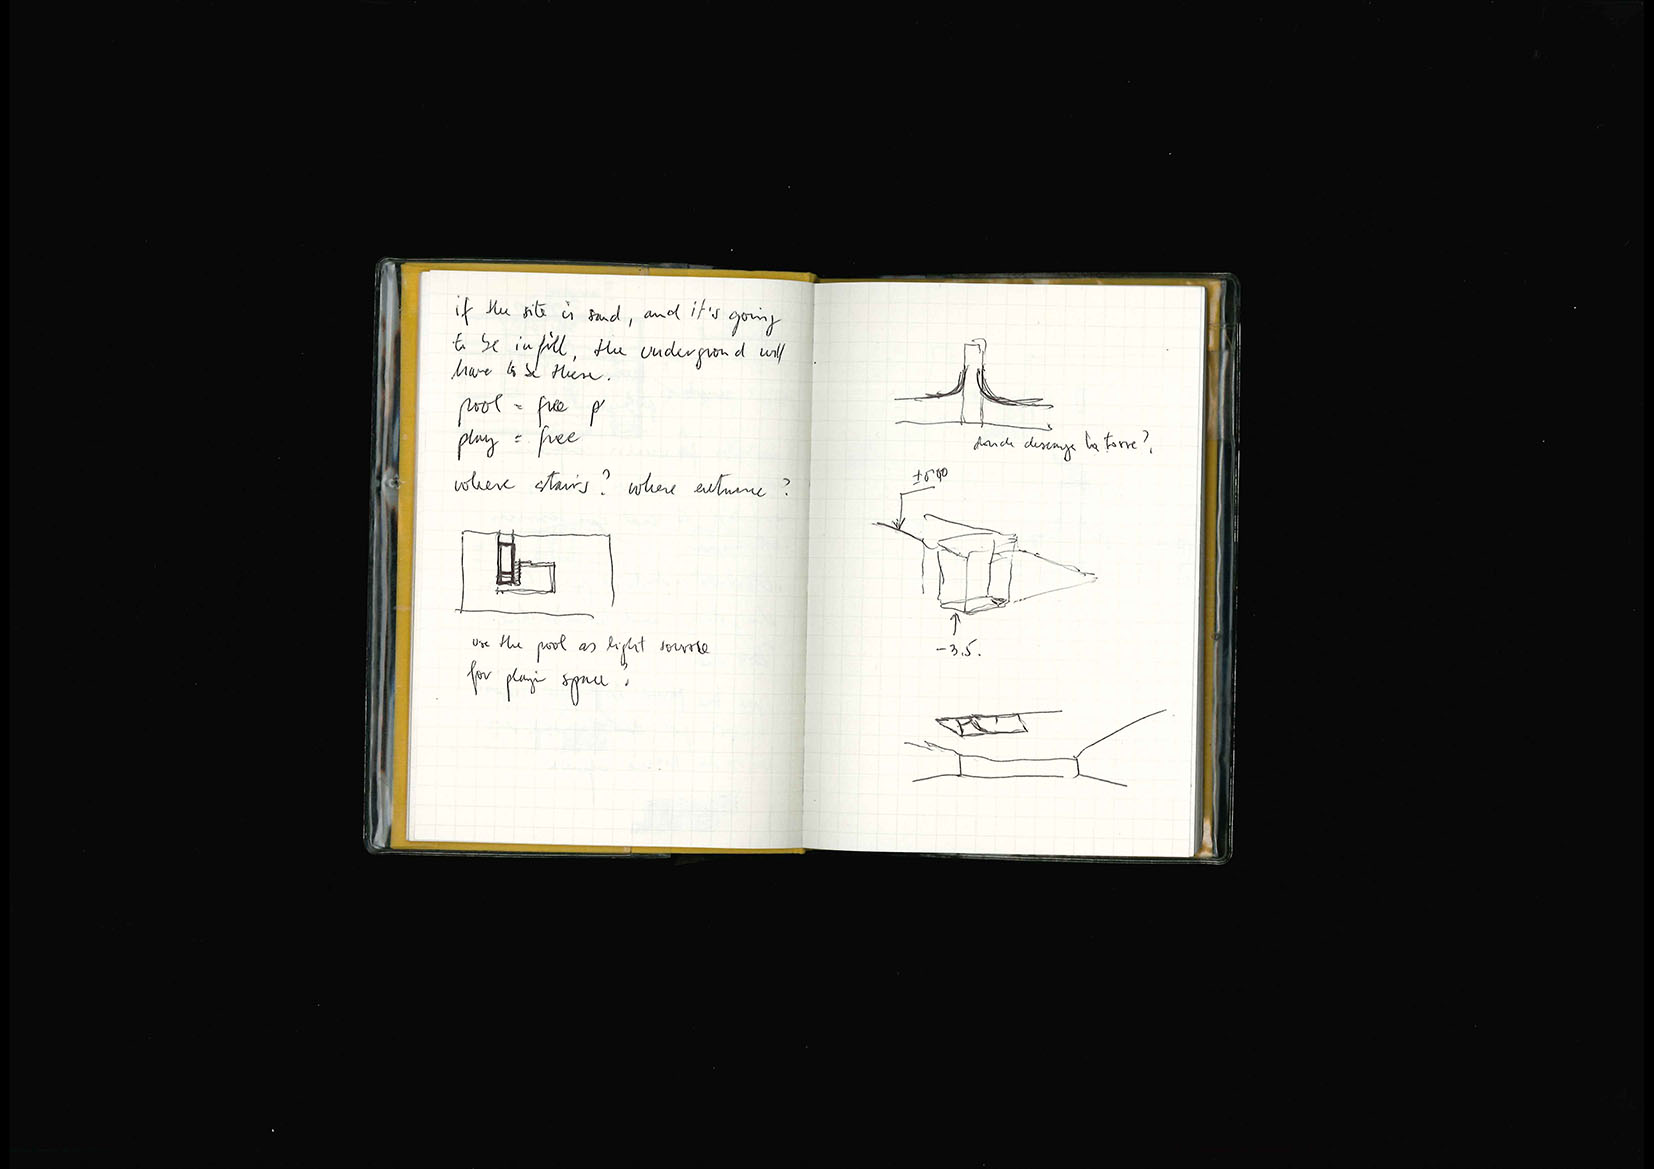 if the site is sand, and it's going
to be infill, the undergrond will
have to be there.
pool = free p
play = free
where stairs? where entrance?
use the pool as light source
for playi space?
donde descarga la torre?
±0.00
-3.5.